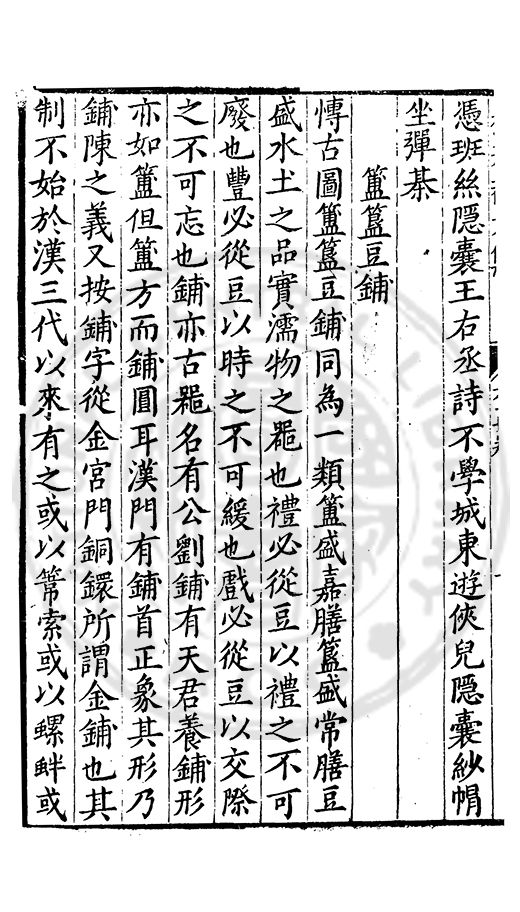 憑班絲隱囊王右丞詩不學城東遊俠兒隱囊紗帽
坐彈棊
簠簋豆鋪
愽古圖簠簋豆鋪同為一類簠盛嘉膳簋盛常膳豆
盛水土之品實濡物之噐也禮必從豆以禮之不可
廢也豐必從豆以時之不可緩也戲必從豆以交際
之不可忘也鋪亦古噐名有公劉鋪有天君養鋪形
亦如簠但簠方而鋪圓耳漢門有鋪首正象其形乃
鋪陳之義又按鋪字從金宮門銅鐶所謂金鋪也其
制不始於漢三代以來有之或以箒索或以螺蚌或